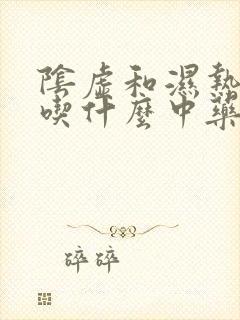 陰虛和濕熱
喫什麼中藥
碎碎